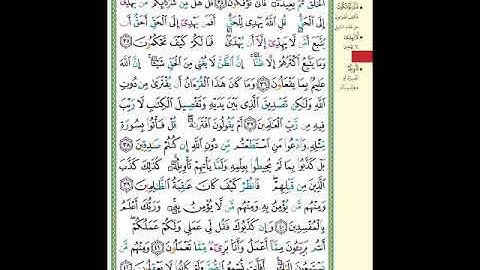 الْخَلْقَ ثُمَّ يُعِيدُهُ فَأَنَّىٰ تُؤْفَكُونَ ﴿٣٤﴾ قُلْ هَلْ مِن شُرَكَائِكُم مَّن يَهْدِي
إِلَى الْحَقِّ قُلِ اللَّهُ يَهْدِي لِلْحَقِّ أَفَمَن يَهْدِي إِلَى الْحَقِّ أَحَقُّ أَن
يُتَّبَعَ أَمَّن لَّا يَهِدِّي إِلَّا أَن يُهْدَىٰ فَمَا لَكُمْ كَيْفَ تَحْكُمُونَ ﴿٣٥﴾
وَمَا يَتَّبِعُ أَكْثَرُهُمْ إِلَّا ظَنًّا إِنَّ الظَّنَّ لَا يُغْنِي مِنَ الْحَقِّ شَيْئًا إِنَّ اللَّهَ
عَلِيمٌ بِمَا يَفْعَلُونَ ﴿٣٦﴾ وَمَا كَانَ هَٰذَا الْقُرْآنُ أَن يُفْتَرَىٰ مِن دُونِ
اللَّهِ وَلَٰكِن تَصْدِيقَ الَّذِي بَيْنَ يَدَيْهِ وَتَفْصِيلَ الْكِتَابِ لَا رَيْبَ
فِيهِ مِن رَّبِّ الْعَالَمِينَ ﴿٣٧﴾ أَمْ يَقُولُونَ افْتَرَاهُ قُلْ فَأْتُوا بِسُورَةٍ
مِّثْلِهِ وَادْعُوا مَنِ اسْتَطَعْتُم مِّن دُونِ اللَّهِ إِن كُنتُمْ صَادِقِينَ ﴿٣٨﴾
بَلْ كَذَّبُوا بِمَا لَمْ يُحِيطُوا بِعِلْمِهِ وَلَمَّا يَأْتِهِمْ تَأْوِيلُهُ كَذَٰلِكَ كَذَّبَ
الَّذِينَ مِن قَبْلِهِمْ فَانظُرْ كَيْفَ كَانَ عَاقِبَةُ الظَّالِمِينَ ﴿٣٩﴾
وَمِنْهُم مَّن يُؤْمِنُ بِهِ وَمِنْهُم مَّن لَّا يُؤْمِنُ بِهِ وَرَبُّكَ أَعْلَمُ
بِالْمُفْسِدِينَ ﴿٤٠﴾ وَإِن كَذَّبُوكَ فَقُل لِّي عَمَلِي وَلَكُمْ عَمَلُكُمْ
أَنتُم بَرِيئُونَ مِمَّا أَعْمَلُ وَأَنَا بَرِيءٌ مِّمَّا تَعْمَلُونَ ﴿٤١﴾ وَمِنْهُم مَّن
يَسْتَمِعُونَ إِلَيْكَ أَفَأَنتَ تُسْمِعُ الصُّمَّ وَلَوْ كَانُوا لَا يَعْقِلُونَ ﴿٤٢﴾